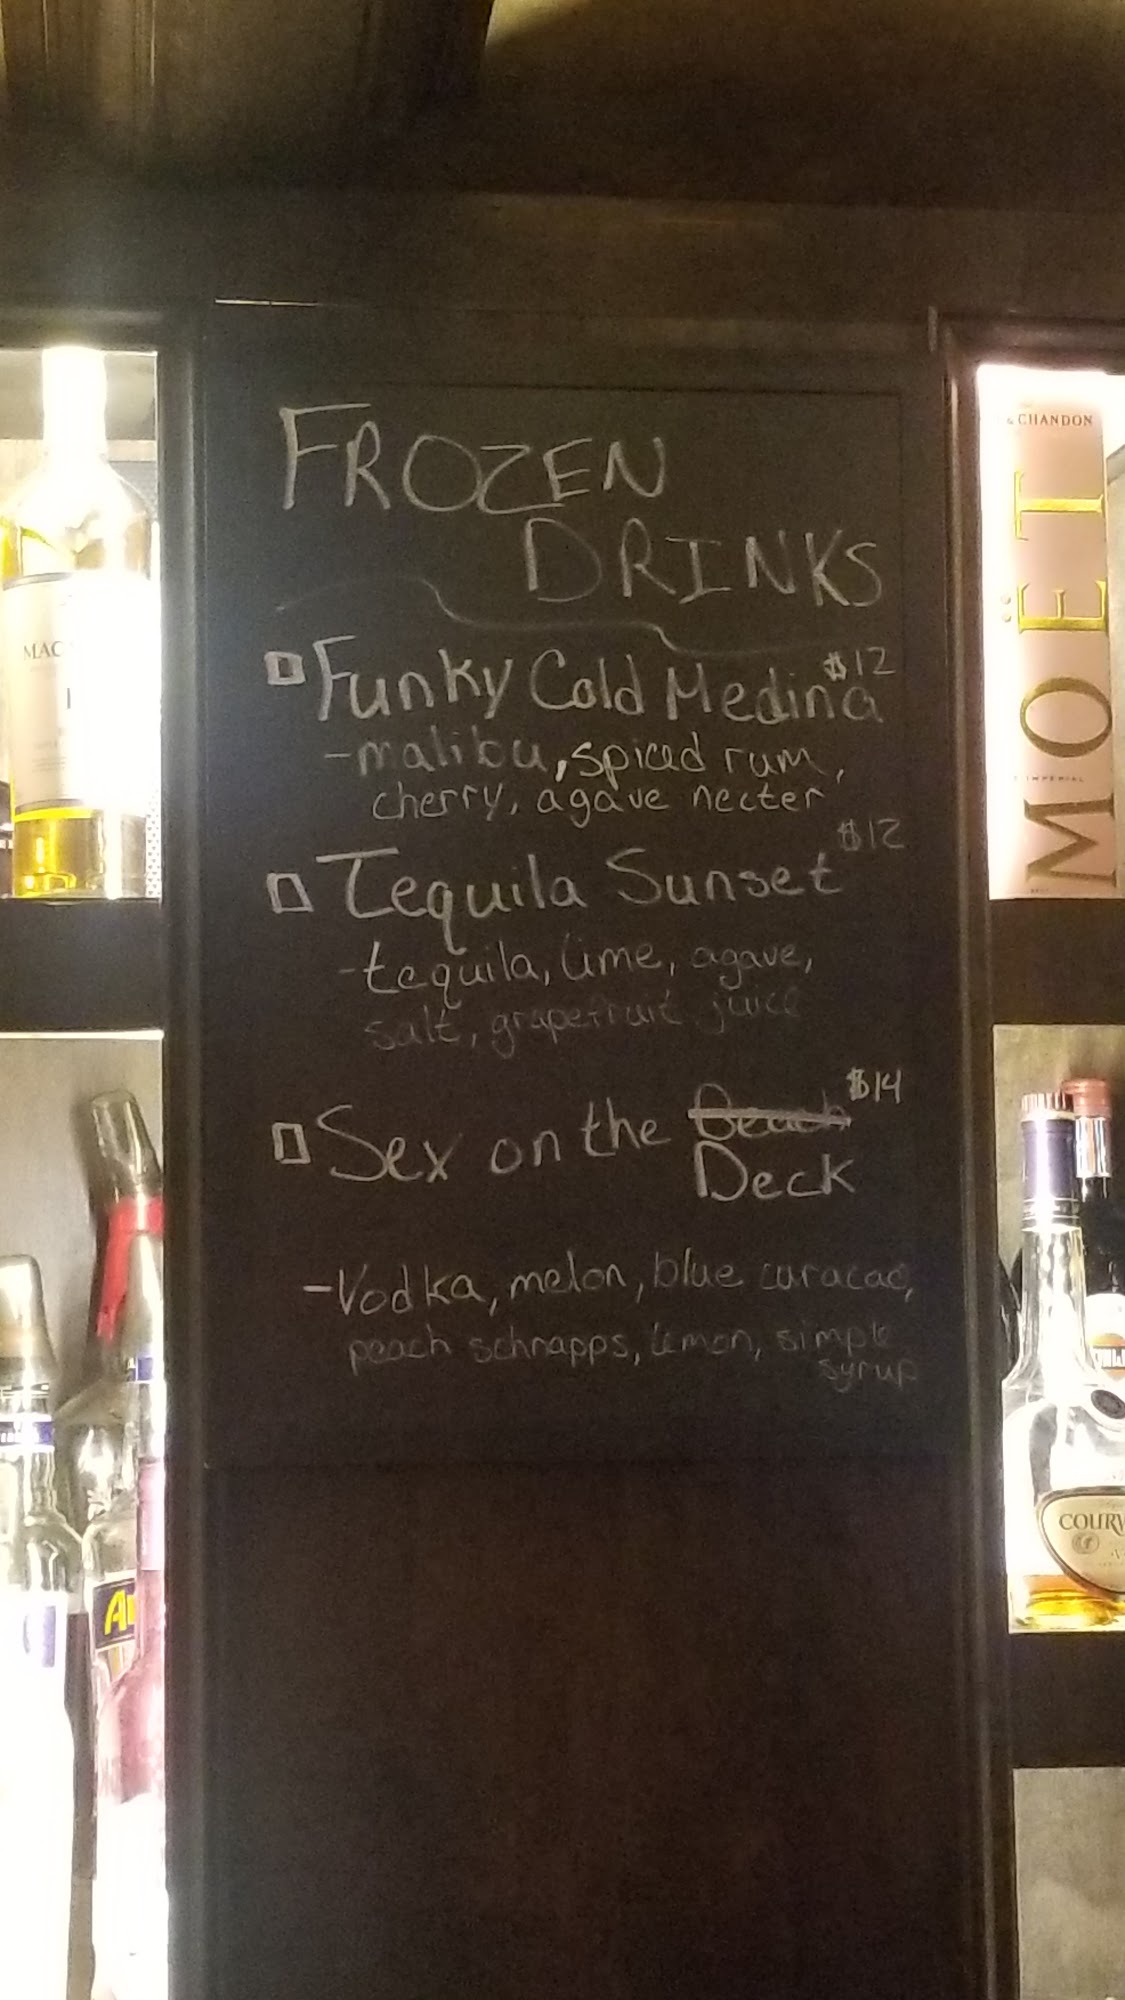 FROZEN
DRINKS
Funky Cold Medina $12
-malibu, spiced rum,
cherry, agave necter
Tequila Sunset $12
-tequila, lime, agave,
salt, grapefruit juice
Sex on the Beach $14
Deck
-Vodka, melon, blue curacao,
peach schnapps, lemon, simple
syrup
& CHANDON
MOËT
IMPERIAL
MAC
COURV